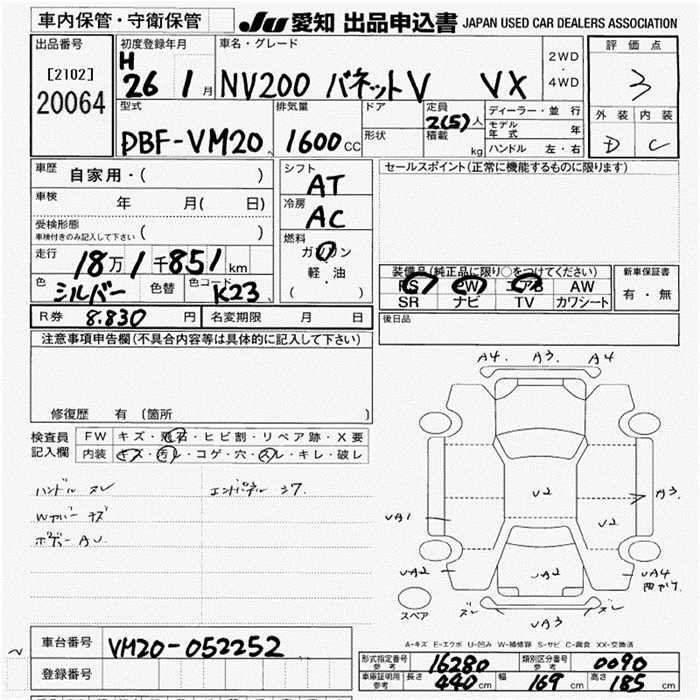 車内保管・守衛保管 JU 愛知 出品申込書 JAPAN USED CAR DEALERS ASSOCIATION
出品番号 [2102] 20064
初度登録年月 H 26 1月
車名・グレード NV200 バネットV VX
2WD・4WD
評価点 3
外装 D 内装 C
型式 DBF-VM20
排気量 1600CC
ドア 形状
定員 2(5)人
積載 kg
ディーラー・並行
モデル年式 年
ハンドル 左・右
車歴 自家用・( )
シフト AT
セールスポイント(正常に機能するものに限ります)
車検 年 月( 日)
冷房 AC
受検形態 車検付きのみ記入して下さい ( )
燃料 ガソリン 軽・油 ( )
走行 18万1千851km
色 シルバー 色替 色コード K23
装備品(純正品に限り○をつけてください)
PS PW エアB AW
SR ナビ TV カワシート
新車保証書 有・無
R券 8.830円 名変期限 月 日
後日品
注意事項申告欄(不具合内容等は具体的に記入して下さい)
修復歴 有(箇所 )
検査員記入欄
FW キズ・飛石・ヒビ割・リペア跡・X要
内装 キズ・汚レ・コゲ・穴・スレ・キレ・破レ
ハンドル スレ
Wカバー キズ
ボデー AU
A4. A3. A4
U2
A3.
UA1
U2
UA2
UA2
UA4
スペア
スレ UA3 スレ
A-キズ E-エクボ U-凹み W-補修跡 S-サビ C-腐食 XX-交換済
車台番号 VM20-052252
登録番号
形式指定番号 参考 16280 類別区分番号 参考 0090
車庫証明用 参考 長さ 440cm 幅 169cm 高さ 185cm